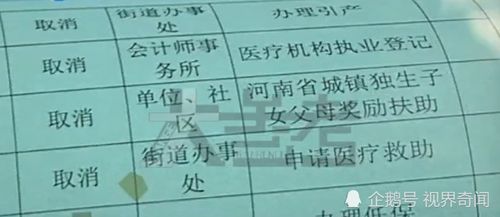 取消 街道办事处 办理引产
取消 会计师事务所 医疗机构执业登记
取消 单位、社区 河南省城镇独生子女父母奖励扶助
取消 街道办事处 申请医疗救助
办理低保
企鹅号 视界奇闻